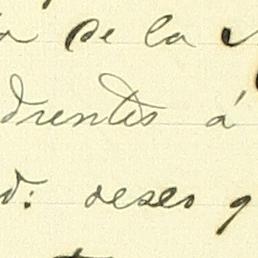 a de la
drentes á
d: deseo q